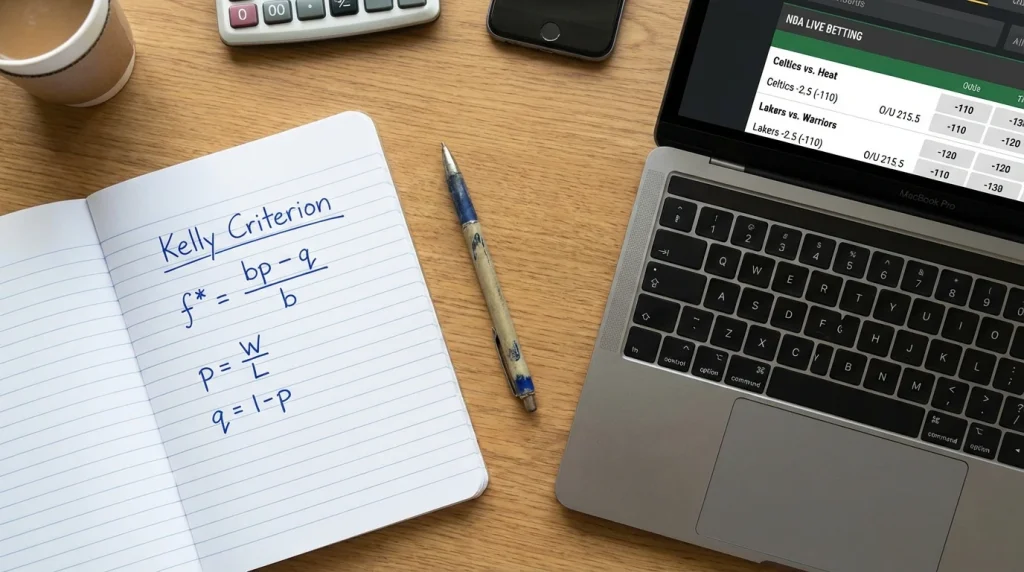 Kelly Criterion
f* = bp - q / b
p = W / L
q = 1 - p
0 00 ·
NBA LIVE BETTING
Odds
Celtics vs. Heat
Celtics -2.5 (-110) O/U 215.5 -110
-110 -120
Lakers vs. Warriors
Lakers -2.5 (-110) O/U 215.5 -120 -120
-110 -130
MacBook Pro
1 2 3 4 5 6 7 8 9
Q W E R T Y U I O
A S D F G H J K L
Z X C V B N M
control option command command option